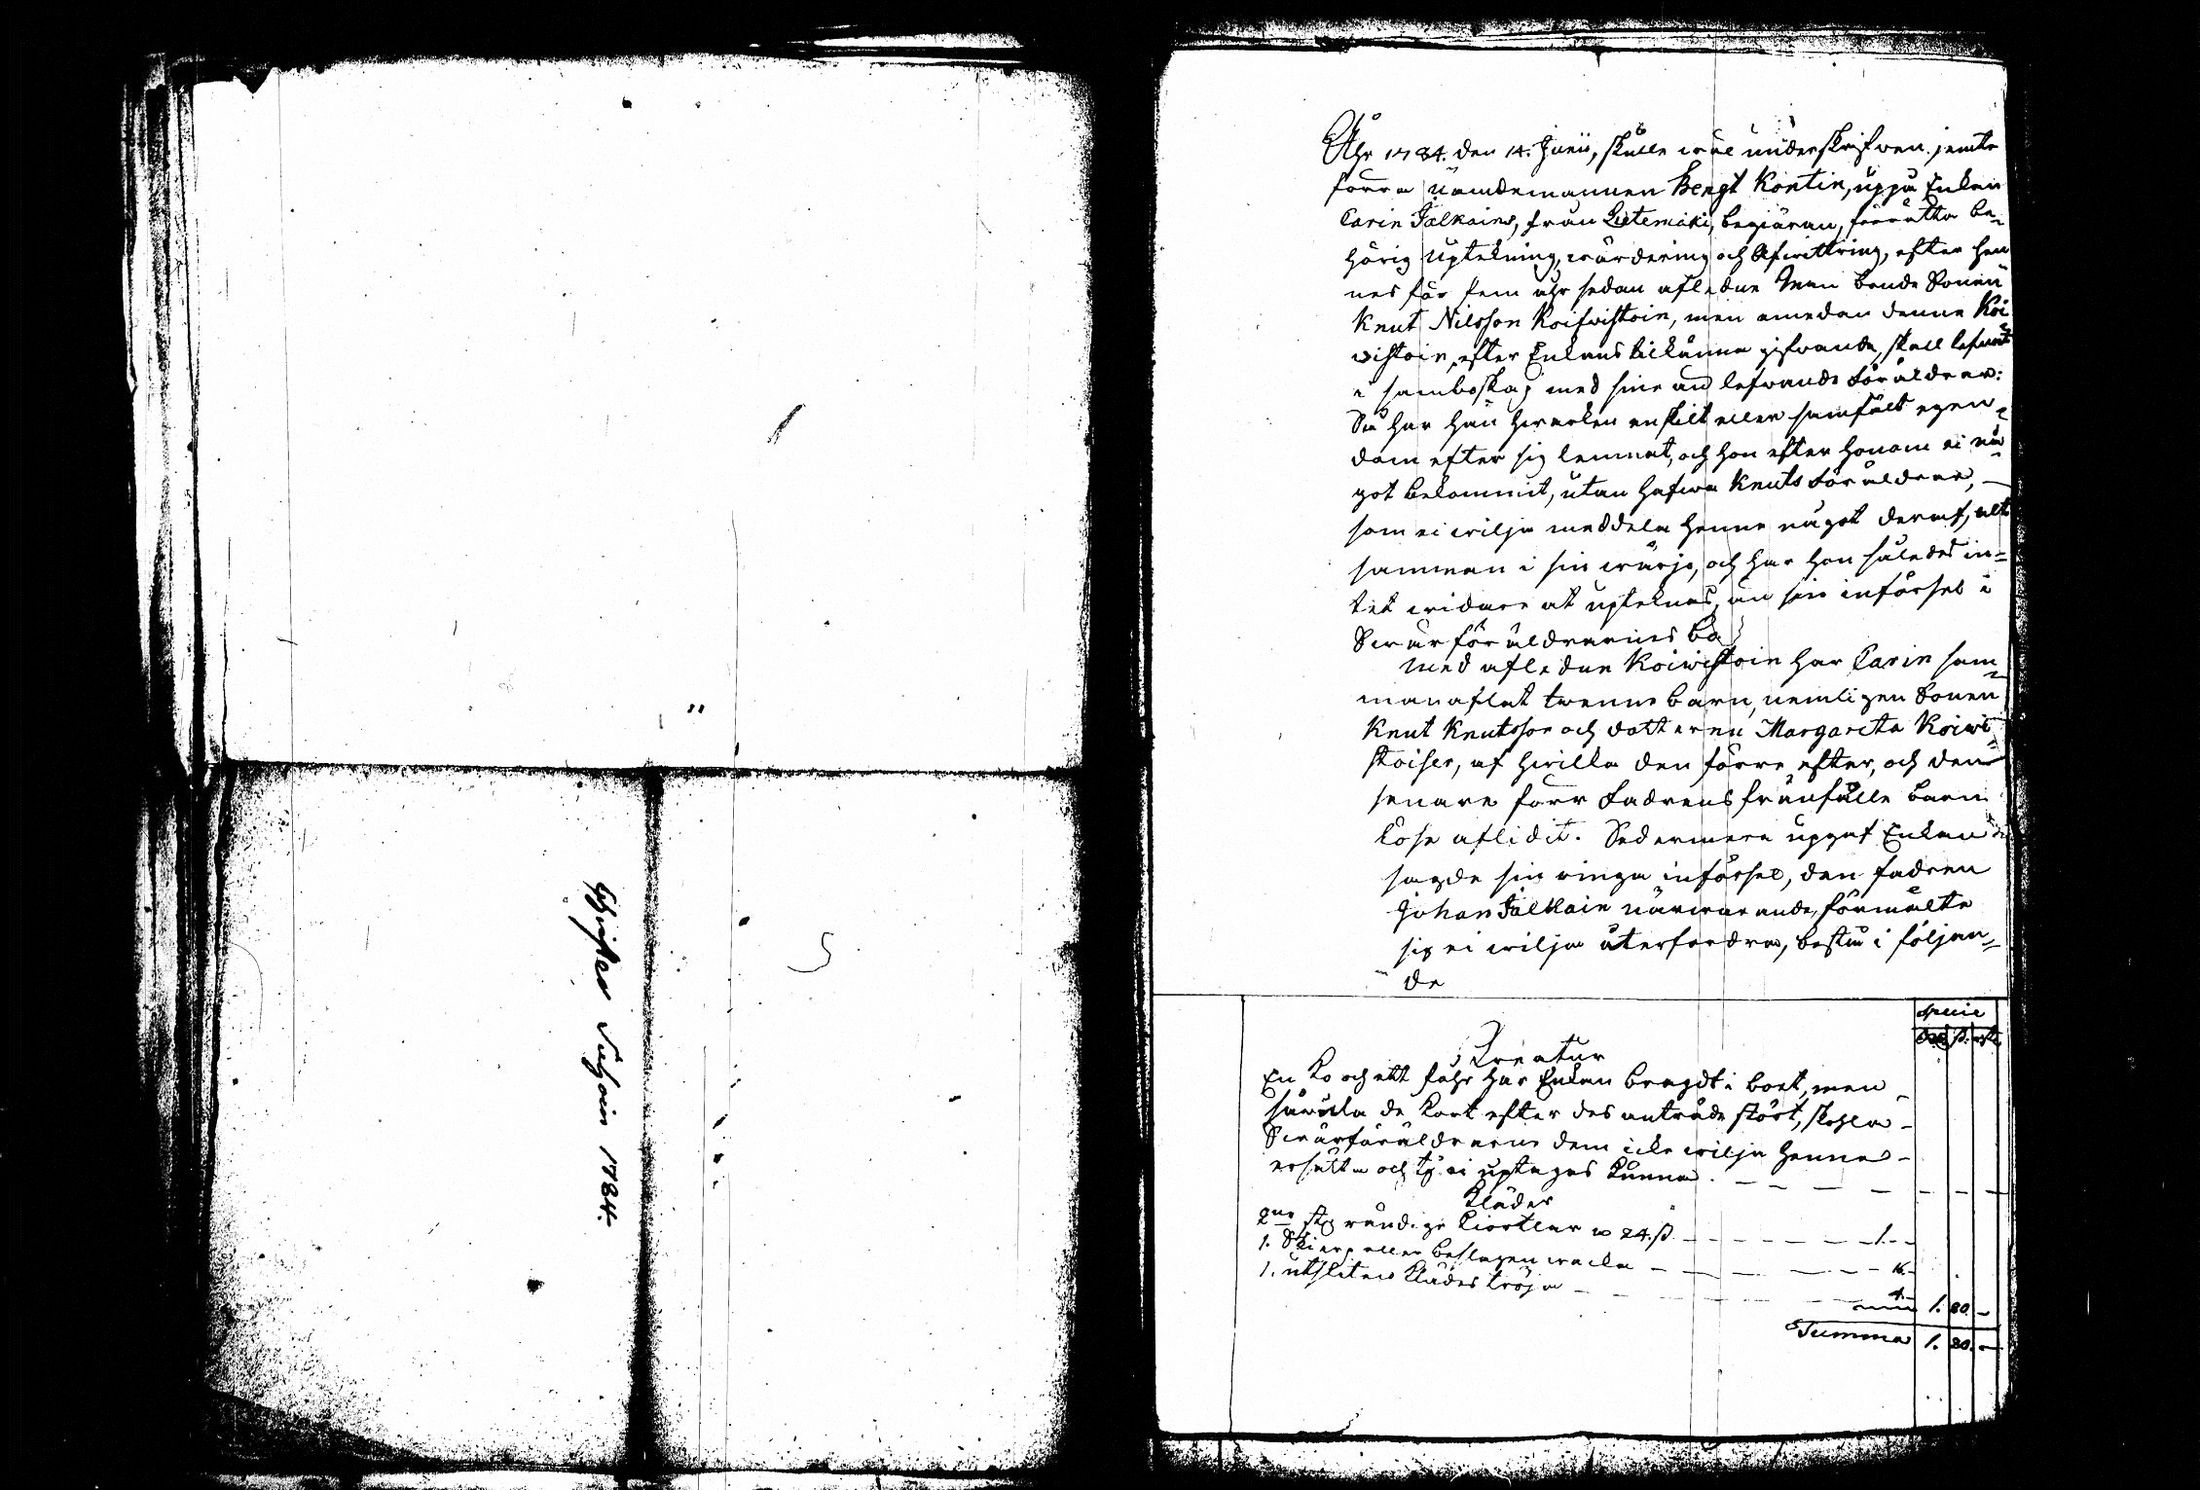 Christer Suhoin 1784.
Åhr 1784. den 14. Junii, skulle wäl underskrifwen jemte
förra nämdemannen Bengt Kontin, uppå Enkan
Carin Jalkains, från Lietemäki, begiäran, förrätta be-
hörig uptekning, wärdering och Afwittring, efter hen
nes för fem åhr sedan afledne Man bonde Sonen
Knut Nilsson Koifwistoin, men emedan denne Koi
wistoin, efter Enkans tilkänna gifwande, skall lefwat
i samboskap med sine än lefwande föräldrar:
Så har han hwarken enskilt eller samfält egen-
dom efter sig lemnat, och hon efter honom ei nå-
got bekommit, utan hafwa Knuts föräldrar,
som ei wilja meddela henne något deraf, alt
samman i sin wärjo, och har hon således in-
tet widare at upteknas, än sin införsel i
Swärföräldrarnes bo
Med afledne Koiwistoin har Carin sam-
manaflat twenne barn, nemligen Sonen
Knut Knutsson och dotteren Margareta Koiwi-
stoiser, af hwilka den förre efter, och den
senare förr Fadrens frånfälle barn
löse aflidit. Sedermera uppgaf Enkan
sagde sin ringa införsel, den fadren
Johan Jalkain närwarande, förmälte
sig ei wilja återfordra, bestå i följan-
de
Specie
Rd ß. rst
Kreatur
En ko och ett fåhr har Enkan bragdt i boet, men
såwäla de kort efter des anträde stört, skola
Swärföräldrarne dem icke wilja henne
ersätta och ty ei uptages kunna.
Kläder
2ne st randige kiortlar a 24.ß - 1.-
1. Skierp eller beslagen - 16.-
1. utsliten klädes tröja - 4.- 1. 20. -
Summa 1. 20. -